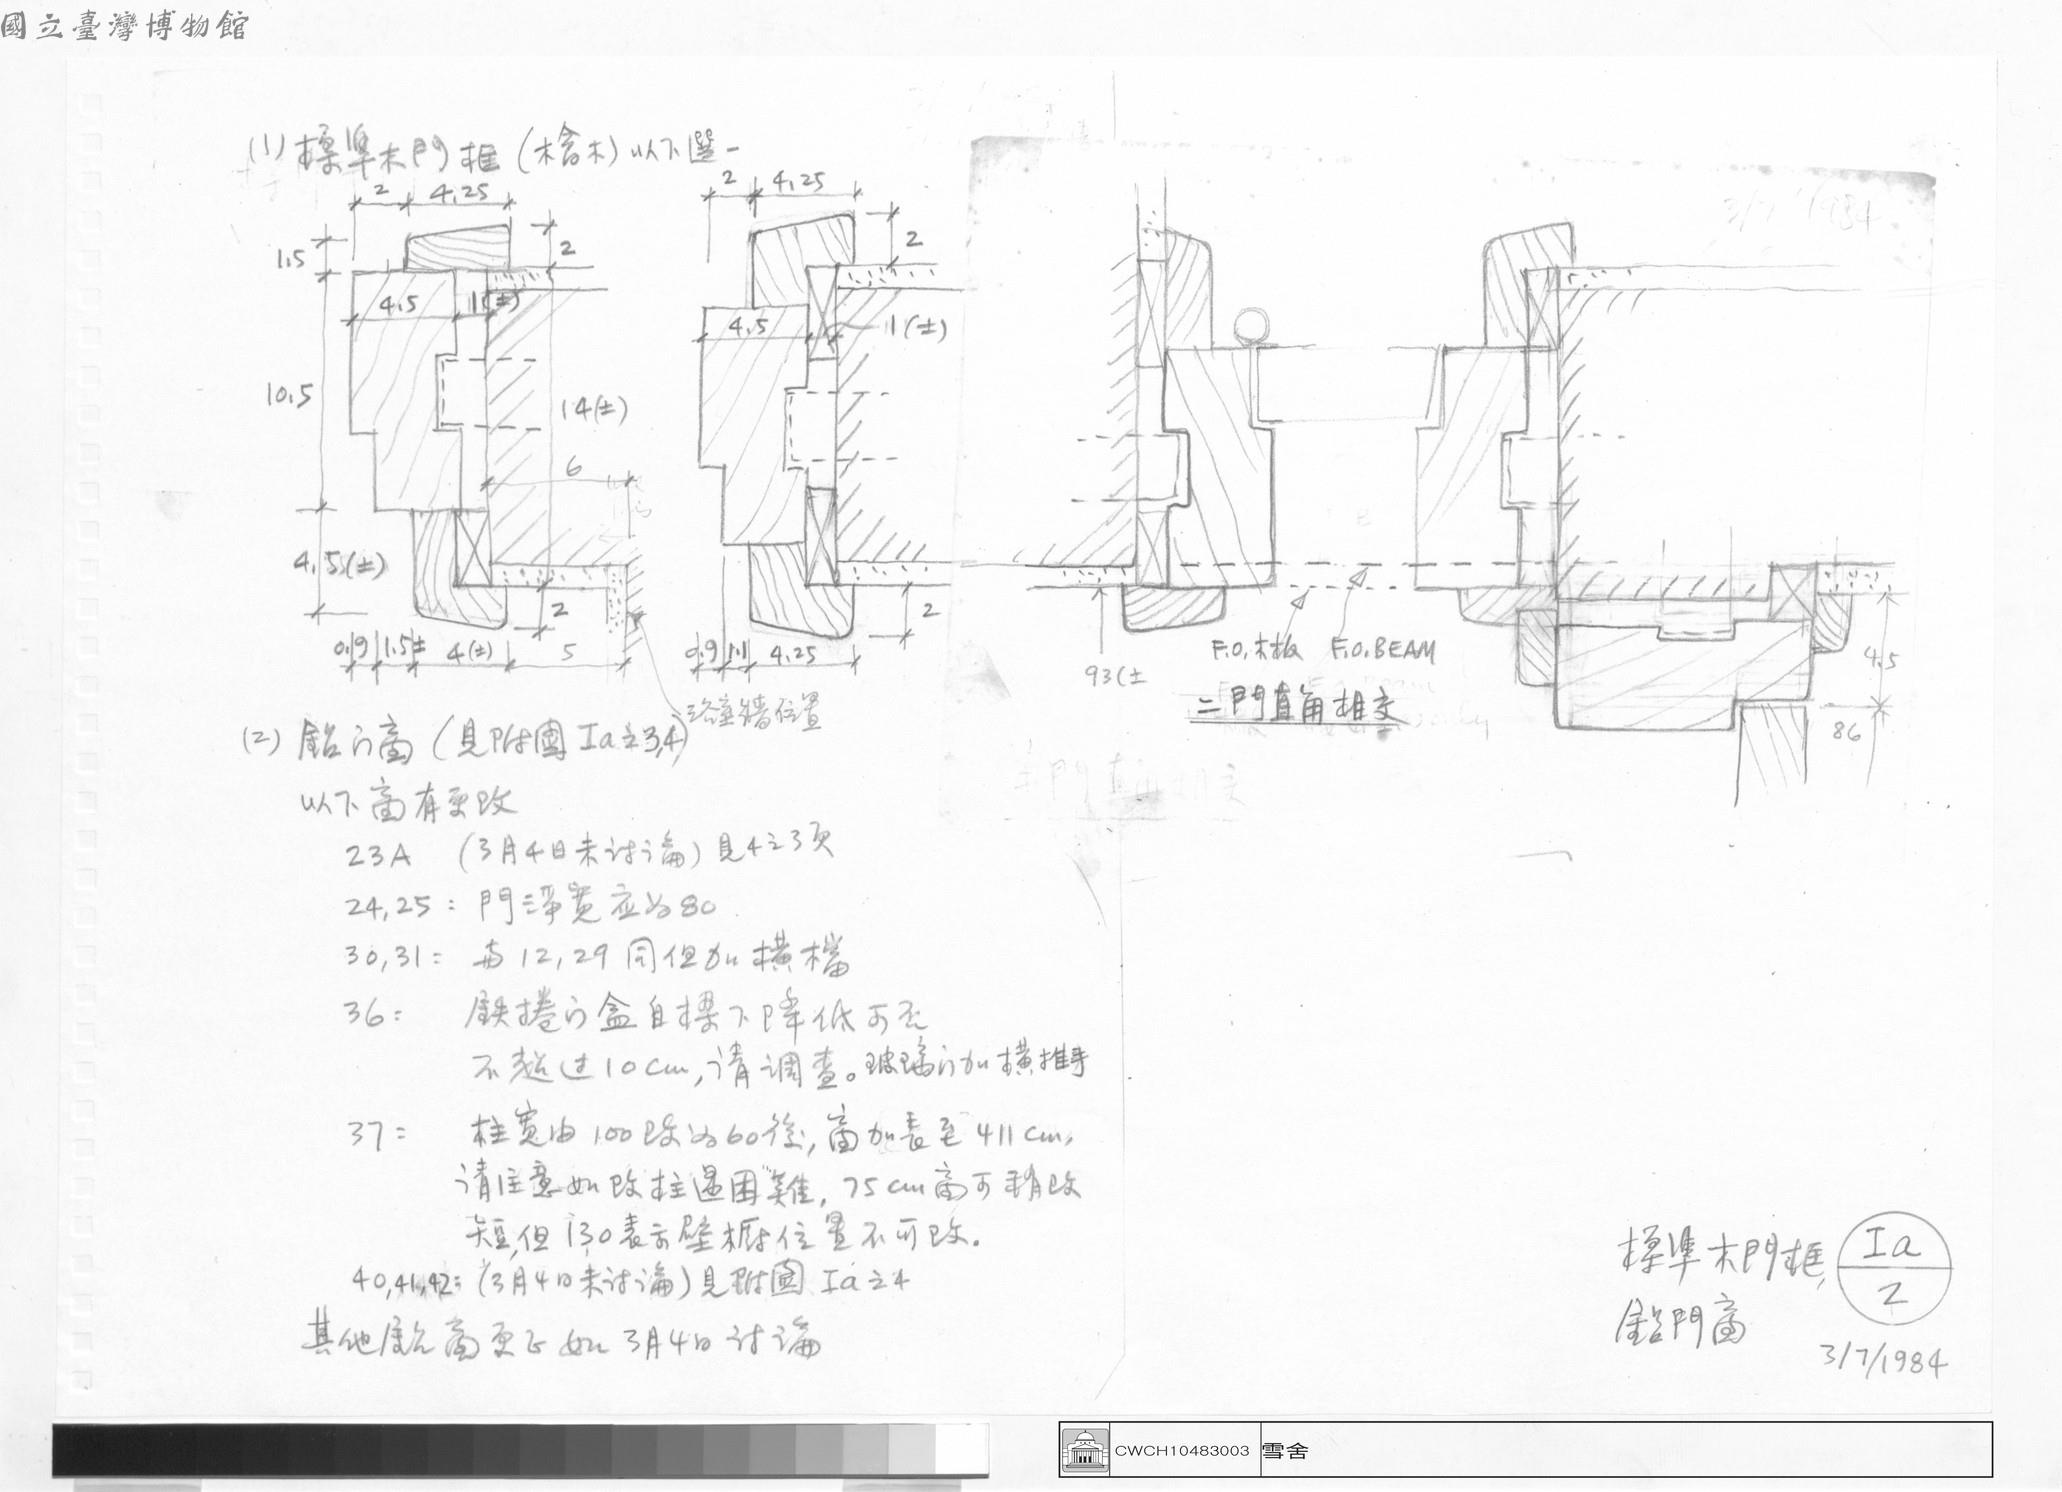 國立臺灣博物館
(1) 標準木門框 (檜木) 以下選一
2 4.25
1.5
2
4.5 1(±)
10.5
14(±)
6
4.5(±)
2
0.9 1.5± 4(±) 5
2 4.25
2
4.5 1(±)
2
0.9 1.1 4.25
3/7/1984
93(±
F.O.木板 F.O.BEAM
二門直角相交
4.5
86
牆位置
(2) 鋁门窗 (見附圖 Ia之3,4)
以下窗有更改
23A (3月4日未討論) 見4之3頁
24,25: 門淨寬应为80
30,31: 与12,29同但加橫檔
36: 鉄捲门盒自樑下降低可否
不超过10cm,请調查。玻璃门加橫推手
37: 柱寬由100改为60後,窗加長至411cm,
请注意如改柱遇困難,75cm窗可稍改
短,但130表示壁櫥位置不可改。
40,41,42: (3月4日未討論) 見附圖 Ia之4
其他鋁窗更正如3月4日討論
標準木門框,
鋁門窗
Ia
2
3/7/1984
CWCH10483003 雪舍